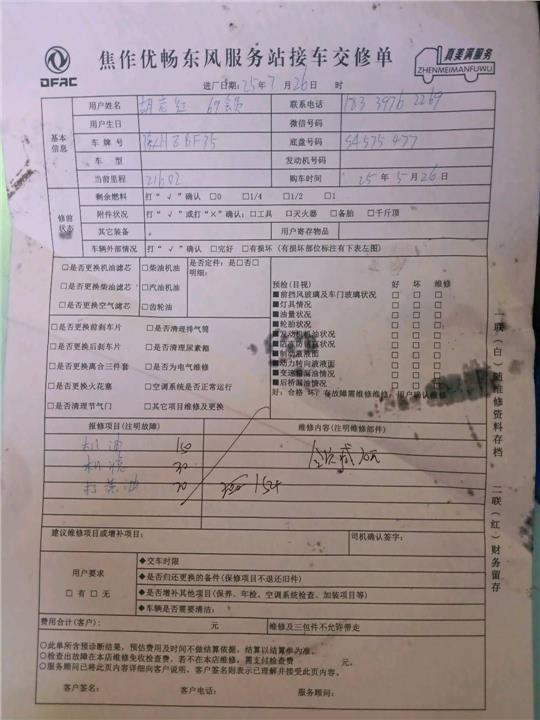 DFAC
焦作优畅东风服务站接车交修单
真美满服务
ZHENMEIMANFUWU
进厂日期:25年7月26日 时
基本信息
用户姓名 联系电话 183 3976 2269
用户生日 微信号码
车牌号 底盘号码 S4575477
车型 发动机号码
当前里程 21602 购车时间 25年5月26日
修前状态
剩余燃料 打“√”确认 □0 □1/4 □1/2 □1
附件状况 打“√”或打“×”确认:□工具 □灭火器 □备胎 □千斤顶
其它装备 用户寄存物品
车辆外部情况 打“√”确认 □完好 □有损坏(有损坏部位标注有下表左图)
□是否更换机油滤芯 □柴油机油
□是否更换柴油滤芯 □汽油机油
□是否更换空气滤芯 □齿轮油
是否定件:是□否□
明细:
□是否更换前刹车片 □是否清理排气筒
□是否更换后刹车片 □是否清理尿素箱
□是否更换离合三件套 □是否为电气维修
□是否更换火花塞 □空调系统是否正常运行
□是否清理节气门 □其它项目维修及更换
预检(目视) 好 坏 维修
■前挡风玻璃及车门玻璃状况 □ □ □
■灯具情况 □ □ □
■油量状况 □ □ □
■轮胎状况 □ □ □
■发动机机油状况 □ □ □
■制动液液面 □ □ □
■动力转向液液面 □ □ □
■变速箱漏油情况 □ □ □
■后桥漏油情况 □ □ □
报修项目(注明故障) 维修内容(注明维修部件)
机油 150
机滤 30
20
154
建议维修项目或增补项目: 司机确认签字:
用户要求
□有 □无
◆交车时限
◆是否归还更换的备件(保修项目不退还旧件)
◆是否增补其他项目(保养、年检、空调系统检查、加装项目等)
◆车辆是否需要清洁:
费用合计(客户): 元 维修及三包件不允许带走
○此单所含预诊断结果,预估费用及时间不做结算依据,结算以结算单为准。
○检查出故障在本店维修免收检查费,若不在本店维修,需支付检查费 元。
○服务顾问已将此页内容详细向客户说明,客户签名则表示已理解并接受此页内容。
客户签名: 客户电话: 服务顾问:
一联(白)随维修资料存档 二联(红)财务留存